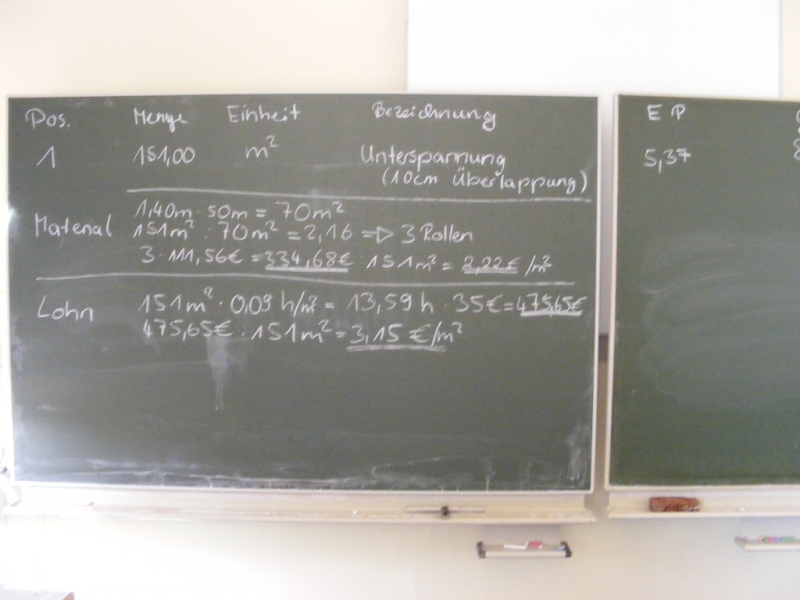 Pos. Menge Einheit Bezeichnung
1 151,00 m² Unterspannung
(10cm Überlappung)
Material 1,40m · 50m = 70m²
151m² : 70m² = 2,16 => 3 Rollen
3 · 111,56€ = 334,68€ : 151m² = 2,22€/m²
Lohn 151m² · 0,09 h/m² = 13,59 h · 35€ = 475,65€
475,65€ : 151m² = 3,15 €/m²
EP
5,37